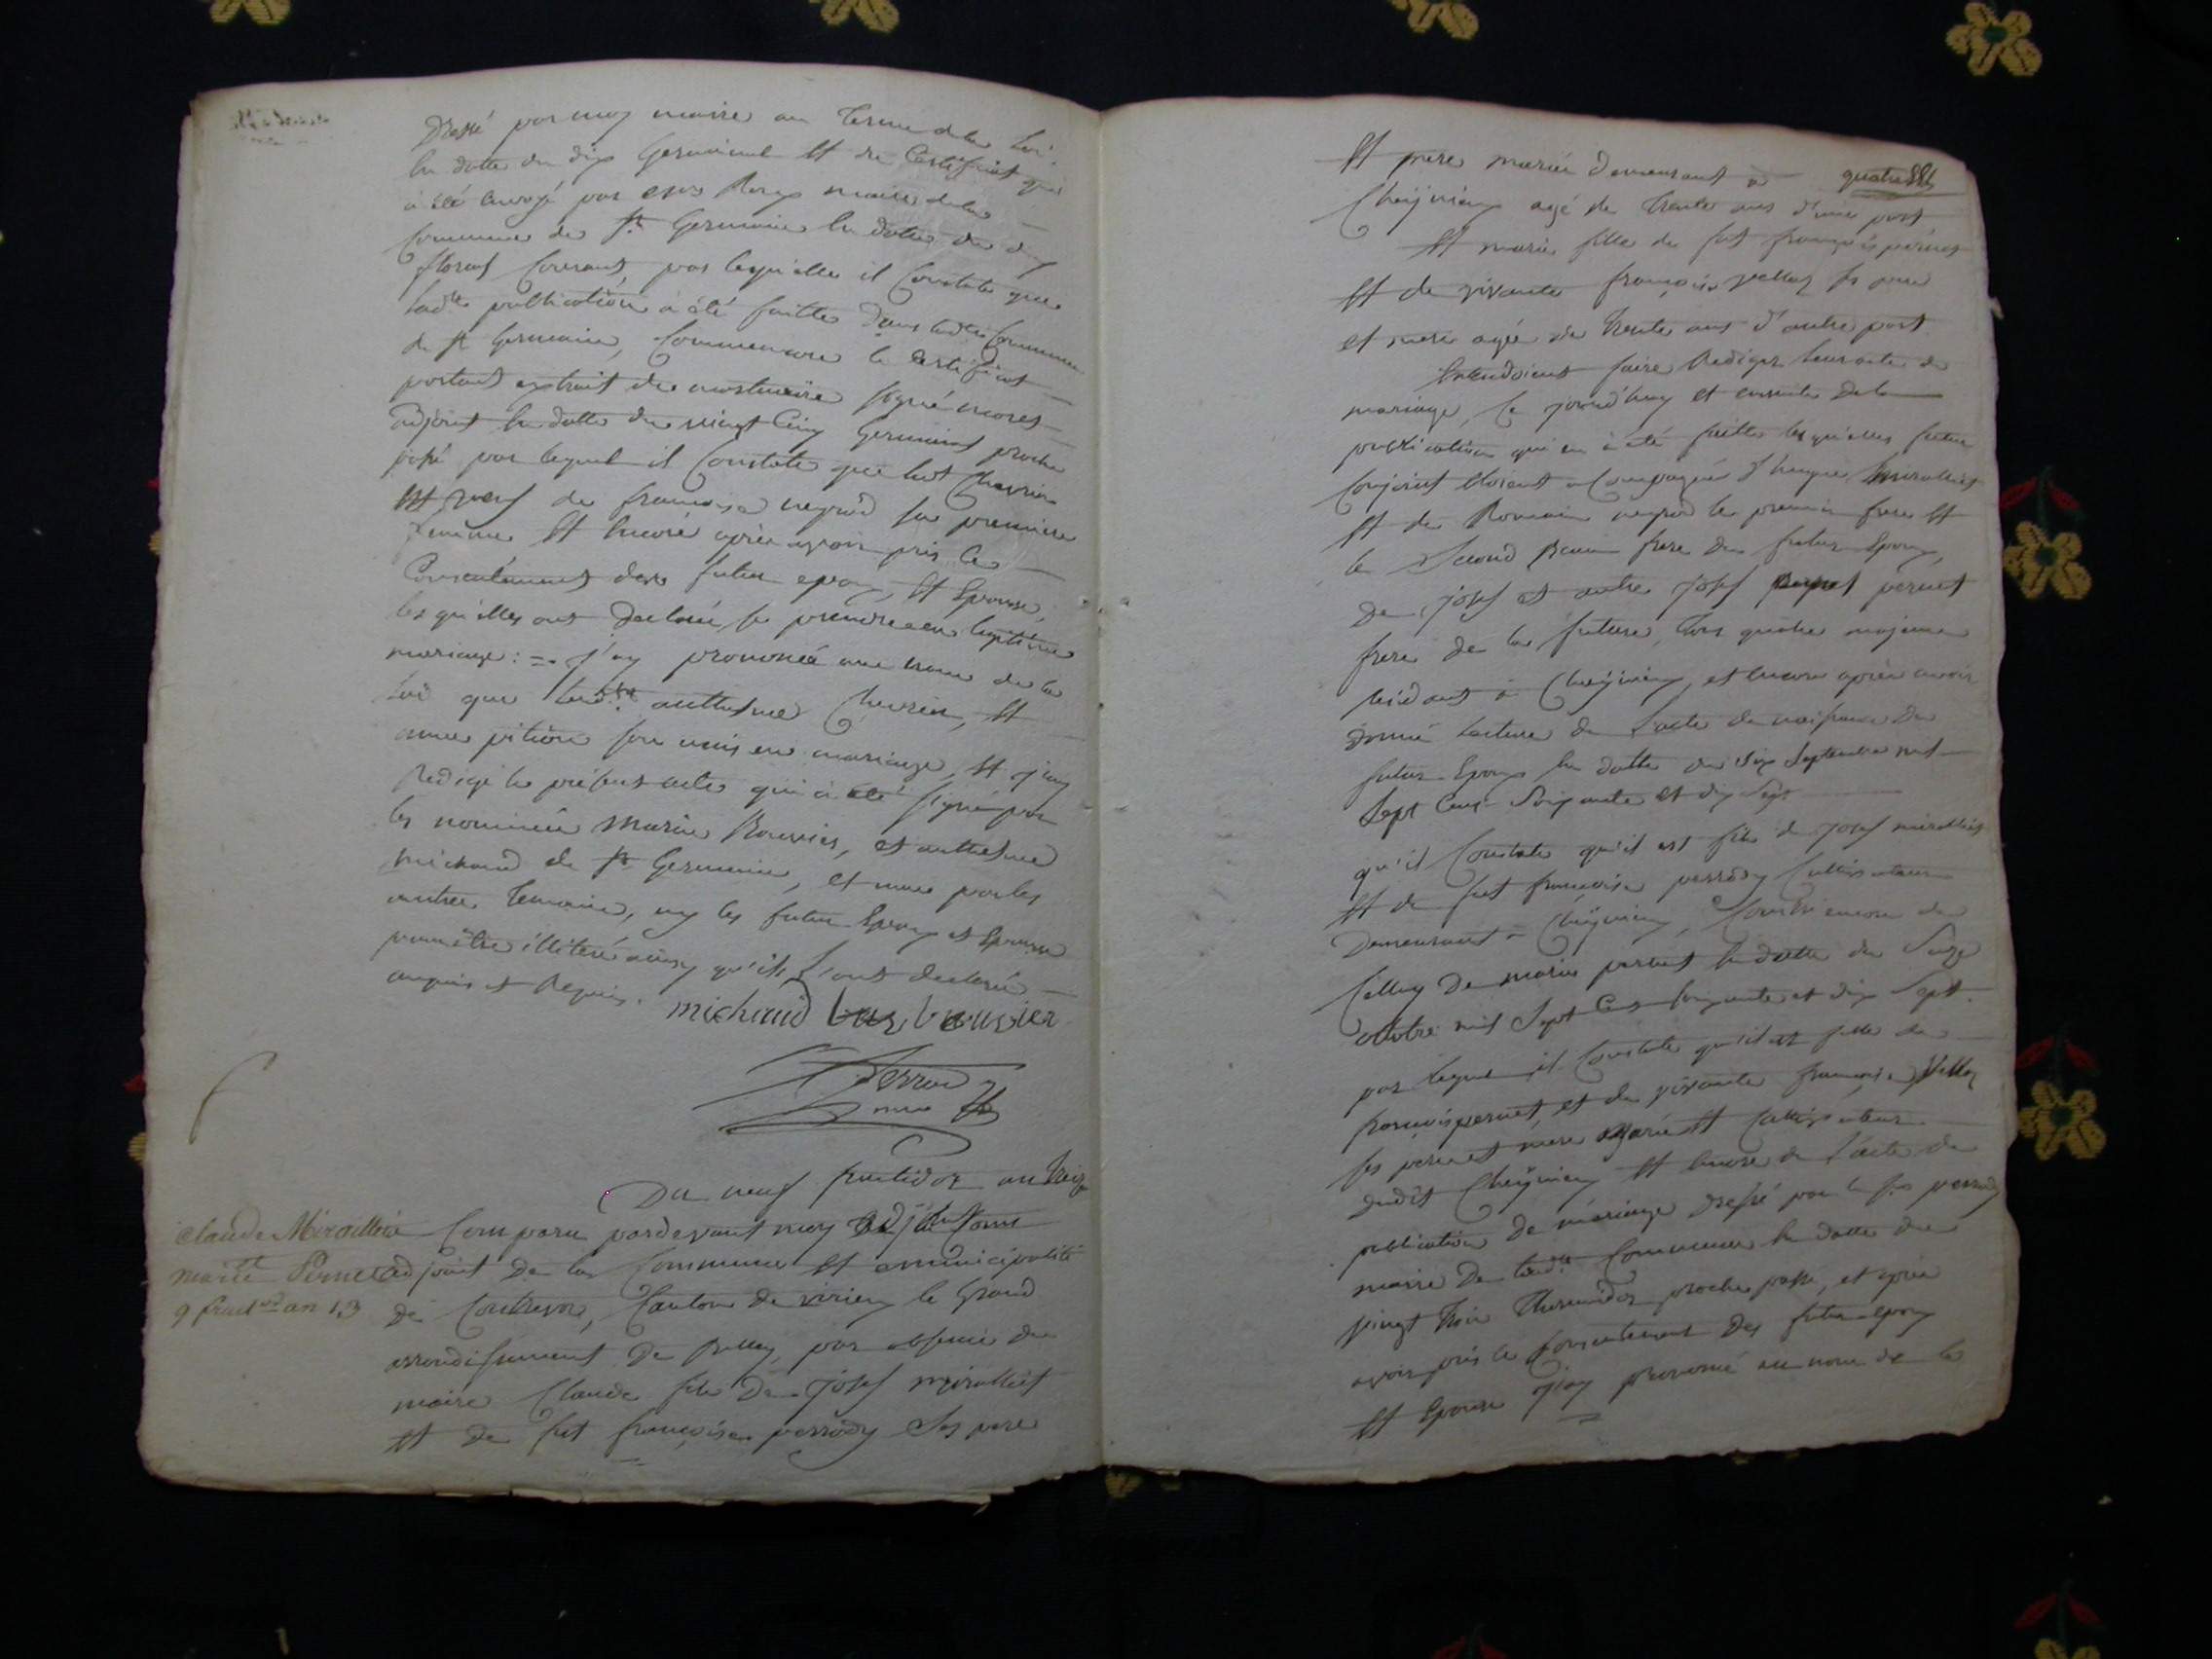 Dressé par moy maire au terme de la loi
la datte du dix Germinal Et du Certificat qui
à été Envoyé par maire de la
Commune de St Germain la datte du dix
floreal Courant, par lequelle il Constate que
ladte publication à été faitte dans ladte Commune
de St Germain, Comme encore le Certificat
portant extrait du mortuaire signé mores
adjoint la datte du vingt Cinq Germinal proche
passé par lequel il Constate que led Chevrier
Et veuf de francoise negrod sa premiere
femme Et Encore après avoir pris le
Consentement des futur epoux, Et Epouse,
lesquelles ont declaré se prendre en legitime
mariage : = j'ay prononcé au nom de la
loi que ledit anthelme Chevrier, Et
anne pition son unis en mariage, Et j'ay
Redigé le présent acte qui à été signé par
les nommée Marin Bouvier, et anthelme
michaud de St Germain, et non par les
autres temoins, ny les futur Epoux et Epouse
pour être illiteré ainsy qu'ils l'ont declaré
enquis et Requis. michaud bouvier
Perrod
maire
Du neuf fructidor an treize
Claude Mirallier
marie Pernet
9 fructor an 13
Comparu pardevant moy
adjoint De la Commune Et municipalité
de Contrevoz, Canton de virieu le Grand
arrondissement De Belley, par absence du
maire Claude fils De Josef mirallier
Et de fut françoise perrody Ses pere
quatre
Et mere mariés demeurant à
Cheyssieu agé de trente ans d'une part
Et marie fille de fut françois pernet
Et de vivante françoise vellay ses pere
et mere agée de trente ans d'autre part
Entendoient faire Rediger leur acte de
mariage, Ce jourd'huy et ensuite de la
publication qui en à été faitte lesquelles futur
Conjoint Etoient accompagnés d'hugue mirallier
Et de Romain negrod le premier frere Et
le Second beau frere du futur Epoux,
De Josef et autre Josef pernet
frere de la future, tous quatre majeurs
residant à et encore après avoir
donné lecture de L'acte de naissance du
futur Epoux la datte du six Septembre mil
Sept Cent Soixante et dix Sept
qu'il Constate qu'il est fils de Josef mirallier
Et de fut françoise perrody Cultivateur
Demeurant à encore de
Celluy De marie pernet la datte du Seize
octobre mil Sept Cent Soixante et dix Sept
par lequel il Constate qu'il est fille de
françois pernet, et de vivante françoise Vellay
ses pere et mere marié Et Cultivateur
dudit Et Encore de L'acte de
publication De mariage dressé par le Sr perrod
maire De ladte Commune la datte du
vingt trois thermidor proche passé, et après
avoir pris le Consentement Des futur epoux
Et Epouse J'ay prononcé au nom de la